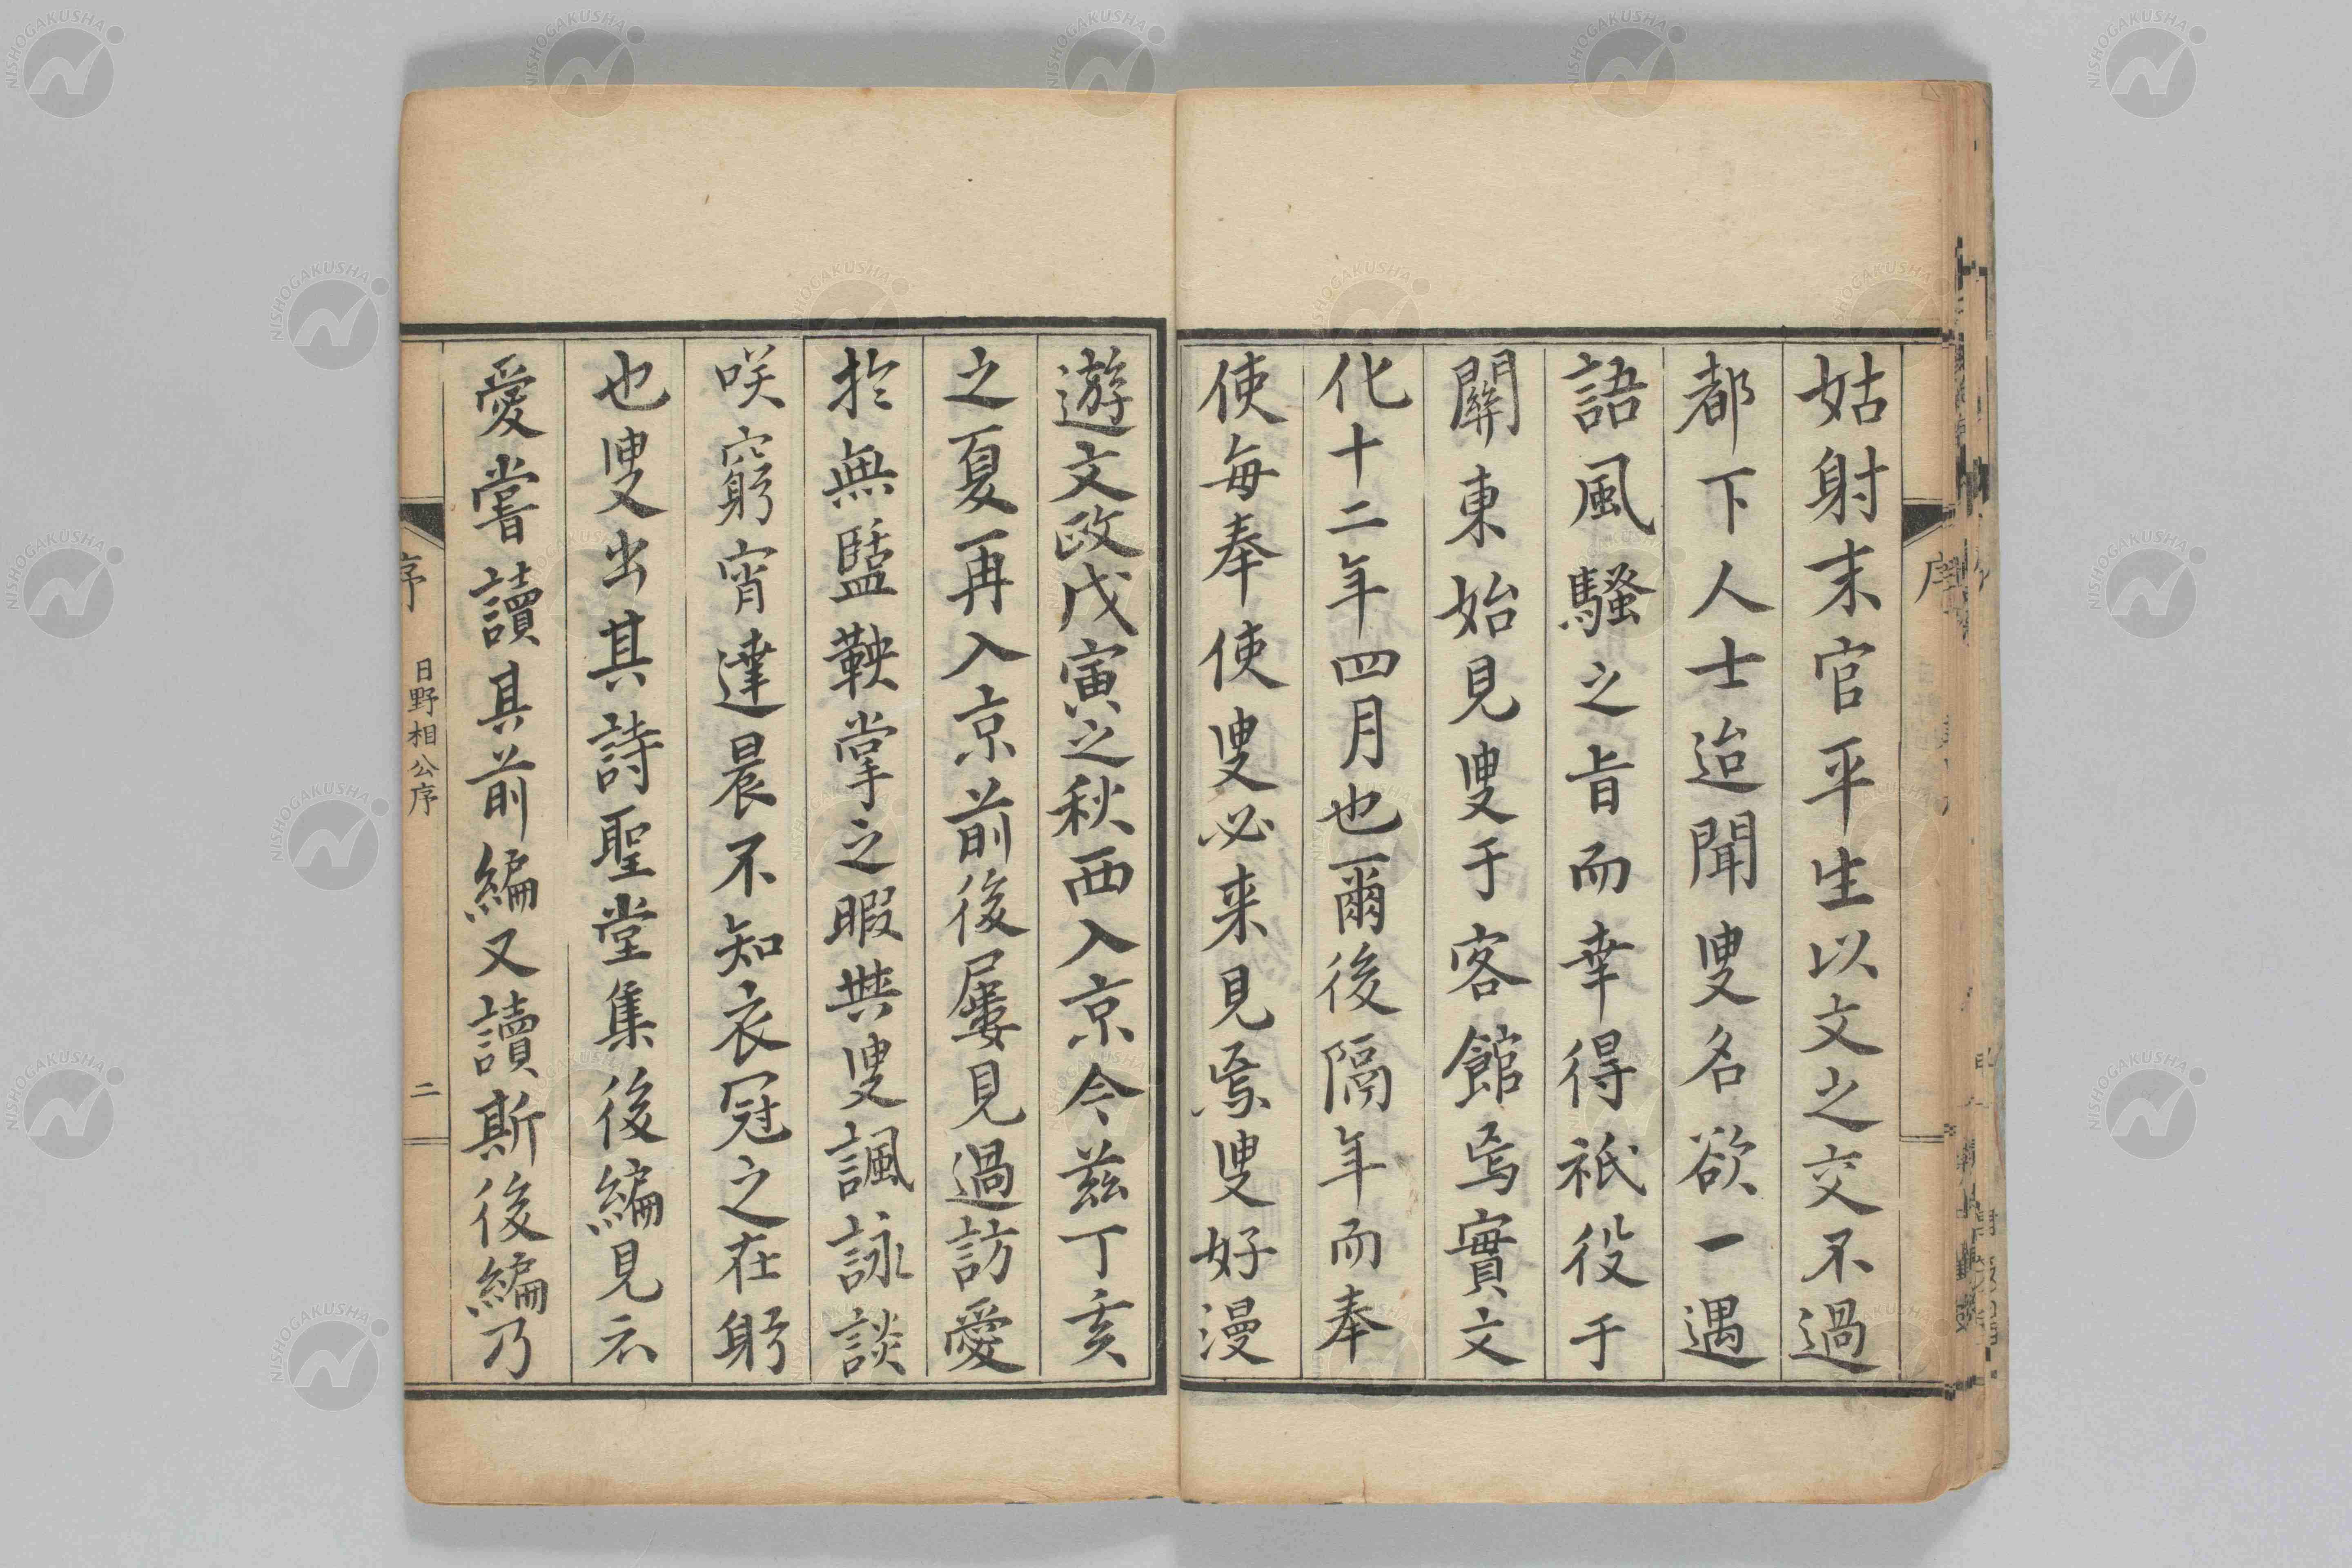 姑射末官平生以文之交不過
都下人士迨聞叟名欲一遇
語風騷之旨而幸得祇役于
關東始見叟于客館焉實文
化十二年四月也爾後隔年而奉
使每奉使叟必来見焉叟好漫
遊文政戊寅之秋西入京今茲丁亥
之夏再入京前後屢見過訪愛
於無盬鞅掌之暇與叟諷詠談
咲窮宵達晨不知衣冠之在躬
也叟出其詩聖堂集後編見示
愛嘗讀其前編又讀斯後編乃
序 日野相公序 二
NISHOGAKUSHA